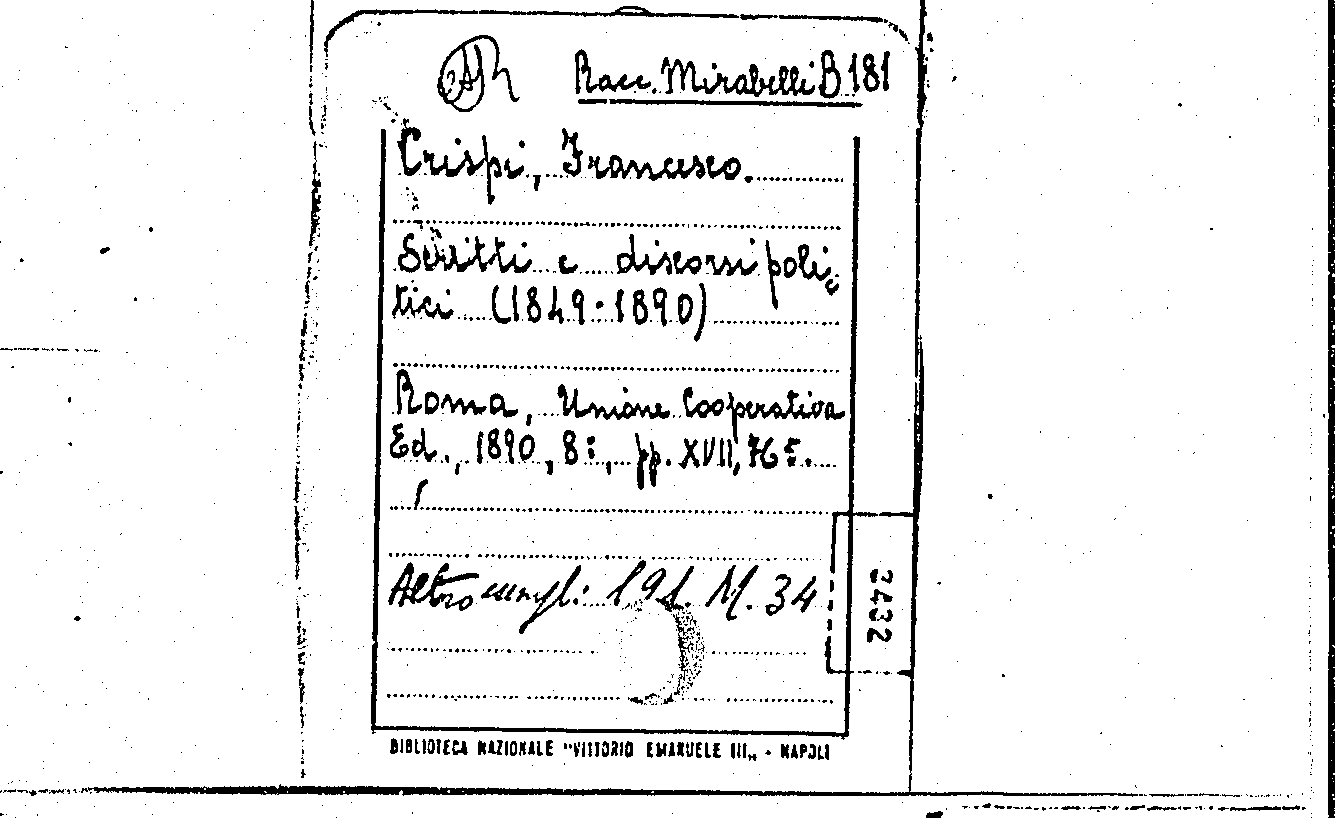 Racc. Mirabelli B 181
Crispi, Francesco.
Scritti e discorsi poli=
tici (1849-1890)
Roma, Unione Cooperativa
Ed., 1890, 8°, pp. XVII, 765.
Altro esempl: 191. M. 34
3432
BIBLIOTECA NAZIONALE "VITTORIO EMANUELE III„ - NAPOLI